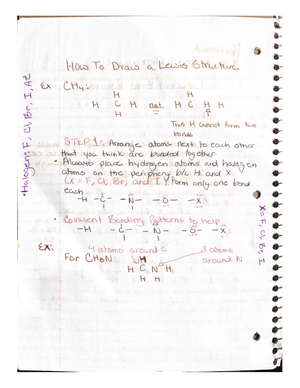 How To Draw a Lewis Structure
Ex: CH4:
H
H C H not H C H H
H H
This H cannot form two
bonds
STEP 1: Arrange atoms next to each other
that you think are bonded together
• Always place hydrogen atoms and halogen
atoms on the periphery b/c H and X
(X = F, Cl, Br, and I). Form only one bond
each
-H -C- -N- -O- -X:
• Covalent Bonding Patterns to help
-H -C- -N- -O- -X:
4 atoms around C
3 atoms
around N
Ex:
For CH5N
H
H C N H
H H
• Halogens: F, Cl, Br, I, At
X = F, Cl, Br, I